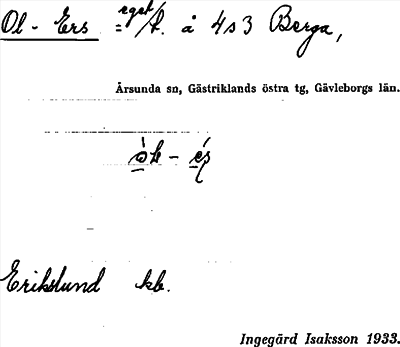 Ol-Ers = rgrt/t. å 4s3 Berga,
Årsunda sn, Gästriklands östra tg, Gävleborgs län.
Erikslund kb.
Ingegärd Isaksson 1933.